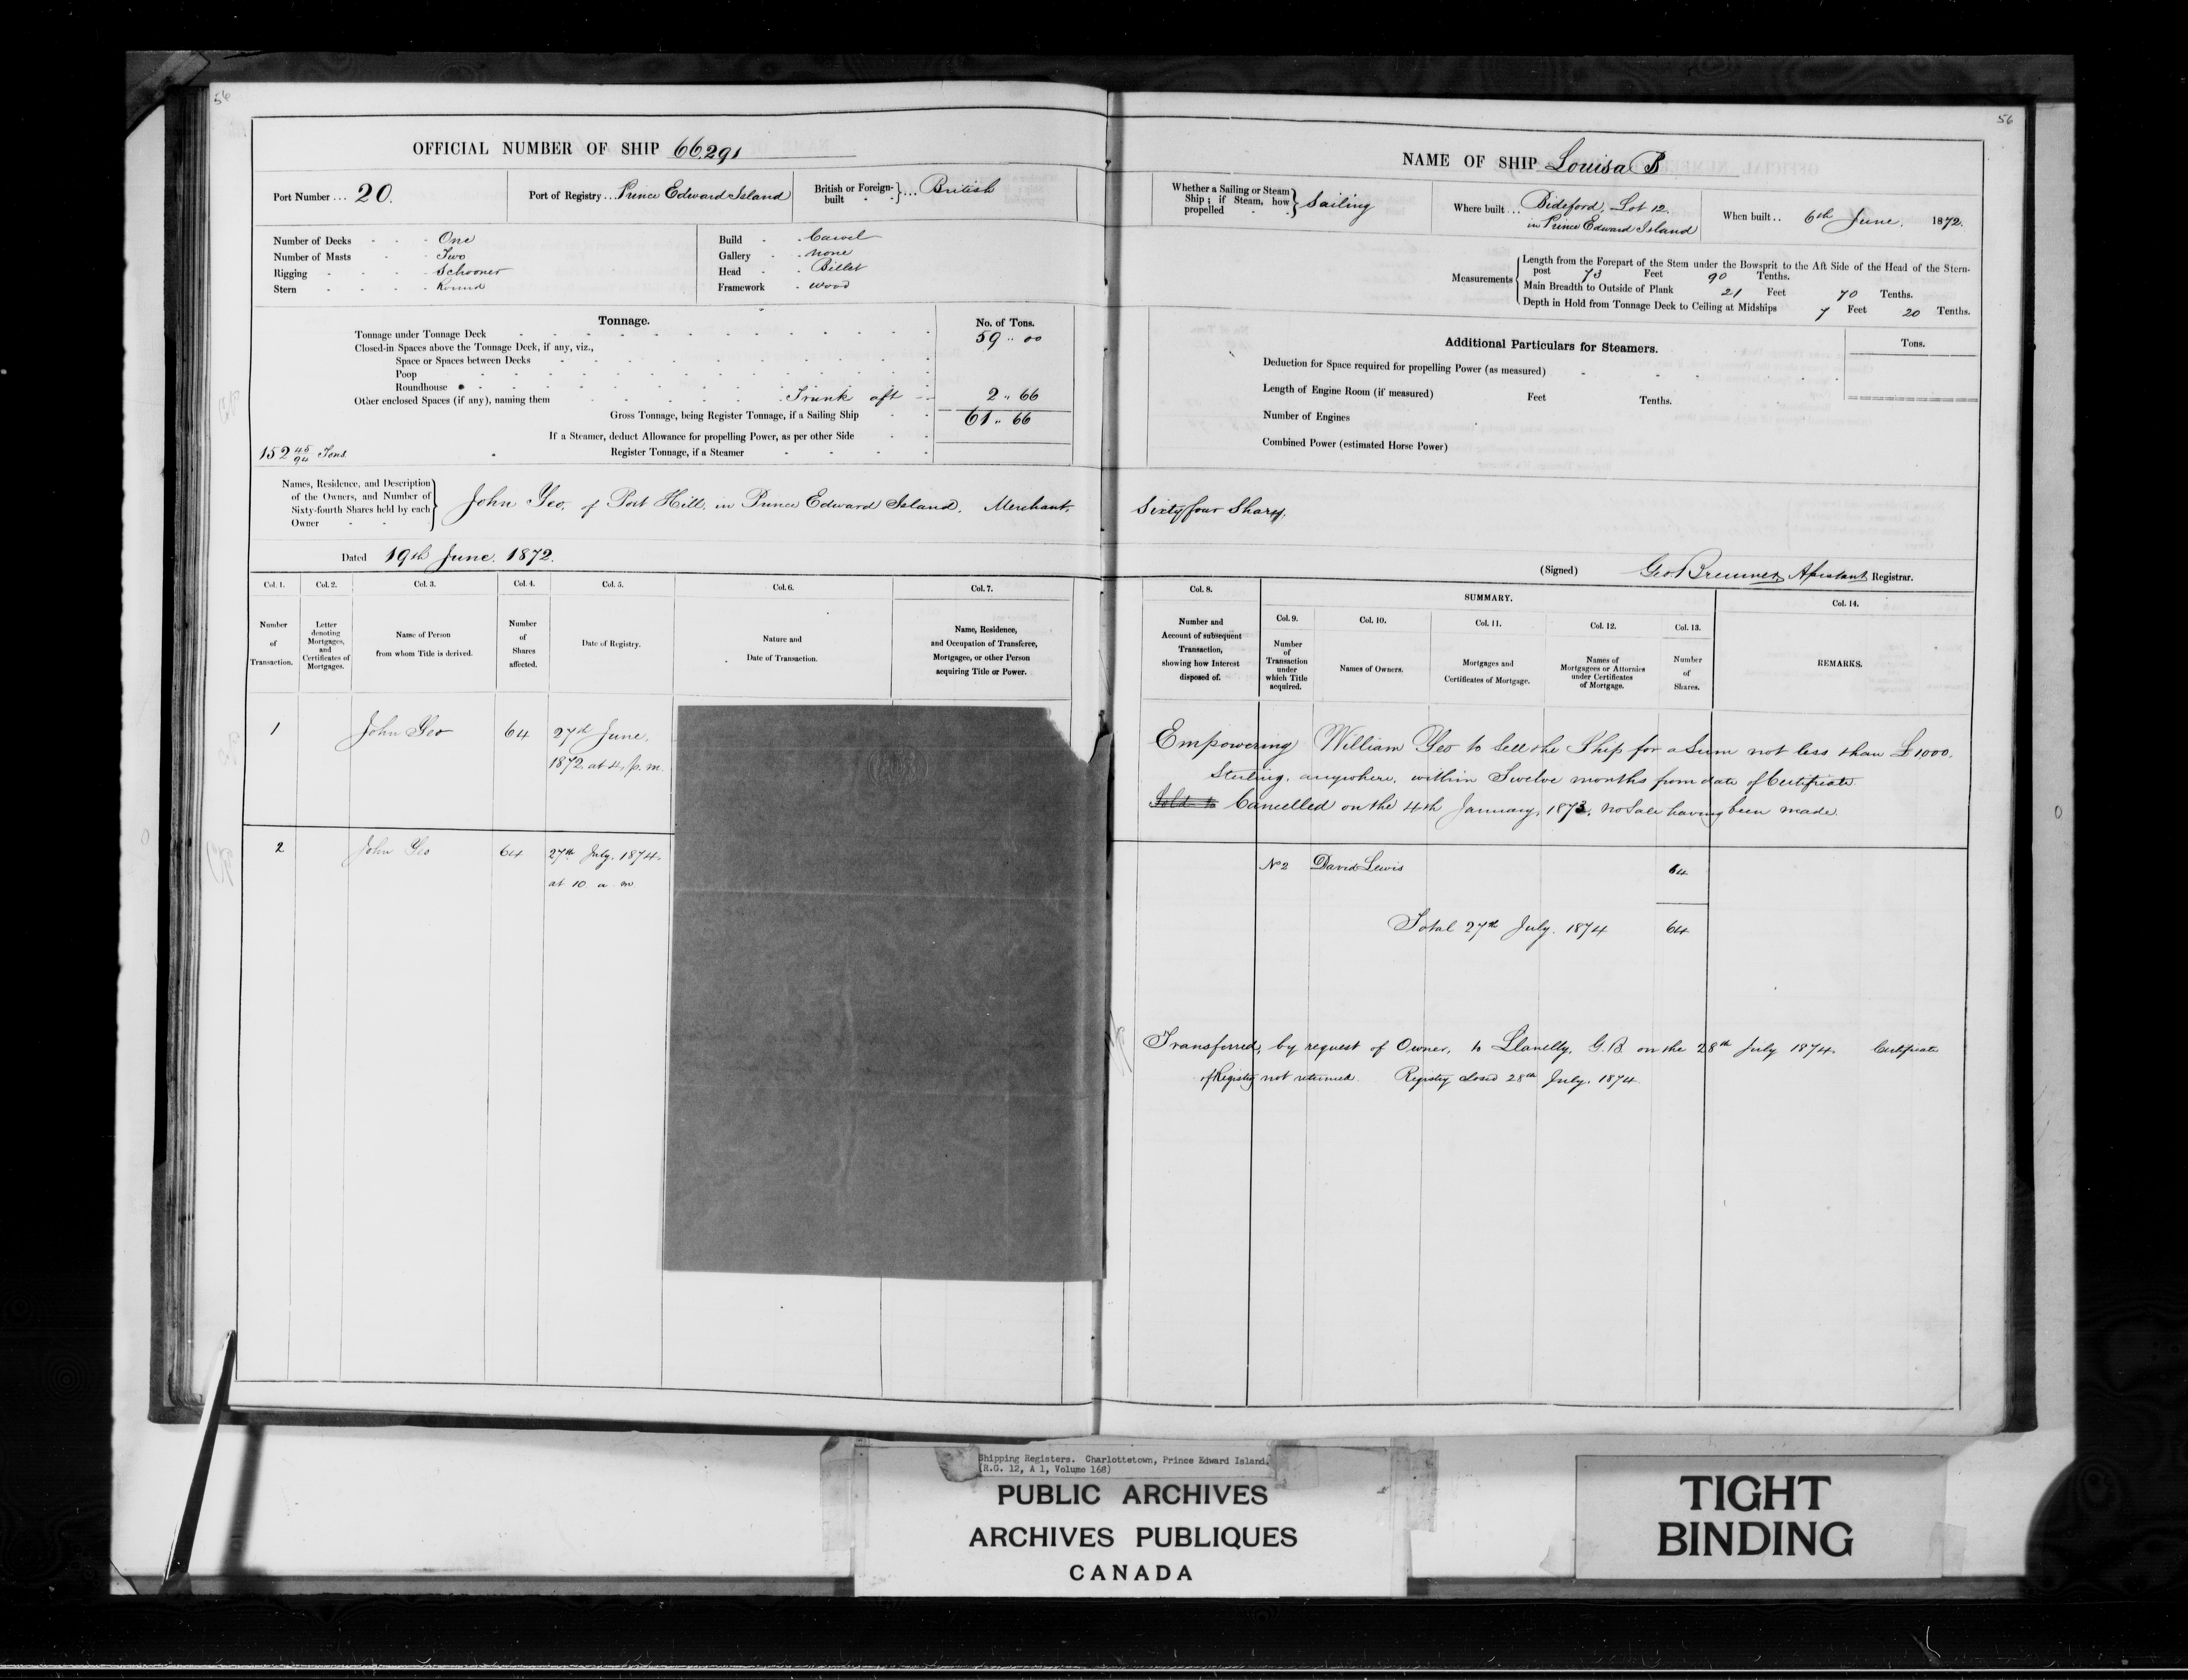 56
OFFICIAL NUMBER OF SHIP 66,291
Port Number ... 20.
Port of Registry ... Prince Edward Island
British or Foreign-built } ... British
Number of Decks - - - One
Number of Masts - - Two
Rigging - - - - Schooner
Stern - - - - Round
Build - - Carvel
Gallery - - none
Head - - Billet
Framework - wood
Tonnage.
No. of Tons.
Tonnage under Tonnage Deck 59 .. 00
Closed-in Spaces above the Tonnage Deck, if any, viz.,
Space or Spaces between Decks
Poop
Roundhouse
Other enclosed Spaces (if any), naming them Trunk aft 2 .. 66
Gross Tonnage, being Register Tonnage, if a Sailing Ship 61 .. 66
If a Steamer, deduct Allowance for propelling Power, as per other Side
152 45/94 Tons.
Register Tonnage, if a Steamer
Names, Residence, and Description
of the Owners, and Number of
Sixty-fourth Shares held by each
Owner
John Yeo, of Port Hill, in Prince Edward Island, Merchant,
Dated 19th June. 1872.
Col. 1. Col. 2. Col. 3. Col. 4. Col. 5. Col. 6. Col. 7.
Number of Transaction.
Letter denoting Mortgages, and Certificates of Mortgages.
Name of Person from whom Title is derived.
Number of Shares affected.
Date of Registry.
Nature and Date of Transaction.
Name, Residence, and Occupation of Transferee, Mortgagee, or other Person acquiring Title or Power.
1 John Yeo 64 27th June,
1872. at 4. p. m.
2 John Yeo 64 27th July. 1874.
at 10 a m
56
NAME OF SHIP Louisa B
Whether a Sailing or Steam Ship; if Steam, how propelled } Sailing
Where built ... Bideford, Lot 12.
in Prince Edward Island
When built .. 6th June. 1872.
Measurements
Length from the Forepart of the Stem under the Bowsprit to the Aft Side of the Head of the Stern-
post 73 Feet 90 Tenths.
Main Breadth to Outside of Plank 21 Feet 70 Tenths.
Depth in Hold from Tonnage Deck to Ceiling at Midships 7 Feet 20 Tenths.
Additional Particulars for Steamers.
Tons.
Deduction for Space required for propelling Power (as measured)
Length of Engine Room (if measured) Feet Tenths.
Number of Engines
Combined Power (estimated Horse Power)
Sixty four Shares.
(Signed) Geo Bremner Assistant Registrar.
Col. 8. SUMMARY. Col. 14.
Col. 9. Col. 10. Col. 11. Col. 12. Col. 13.
Number and Account of subsequent Transaction, showing how Interest disposed of.
Number of Transaction under which Title acquired.
Names of Owners.
Mortgages and Certificates of Mortgage.
Names of Mortgagees or Attornies under Certificates of Mortgage.
Number of Shares.
REMARKS.
Empowering William Yeo to Sell the Ship for a Sum not less than £1000.
Sterling, anywhere, within Twelve months from date of Certificate.
Sold to Cancelled on the 4th January, 1873, no Sale having been made.
No 2 David Lewis 64
Total 27th July. 1874 64
Transferred, by request of Owner, to Llanelly, G.B on the 28th July 1874. Certificate
of Registry not returned. Registry closed 28th July. 1874
Shipping Registers. Charlottetown, Prince Edward Island.
(R.G. 12, A 1, Volume 168)
PUBLIC ARCHIVES
ARCHIVES PUBLIQUES
CANADA
TIGHT
BINDING